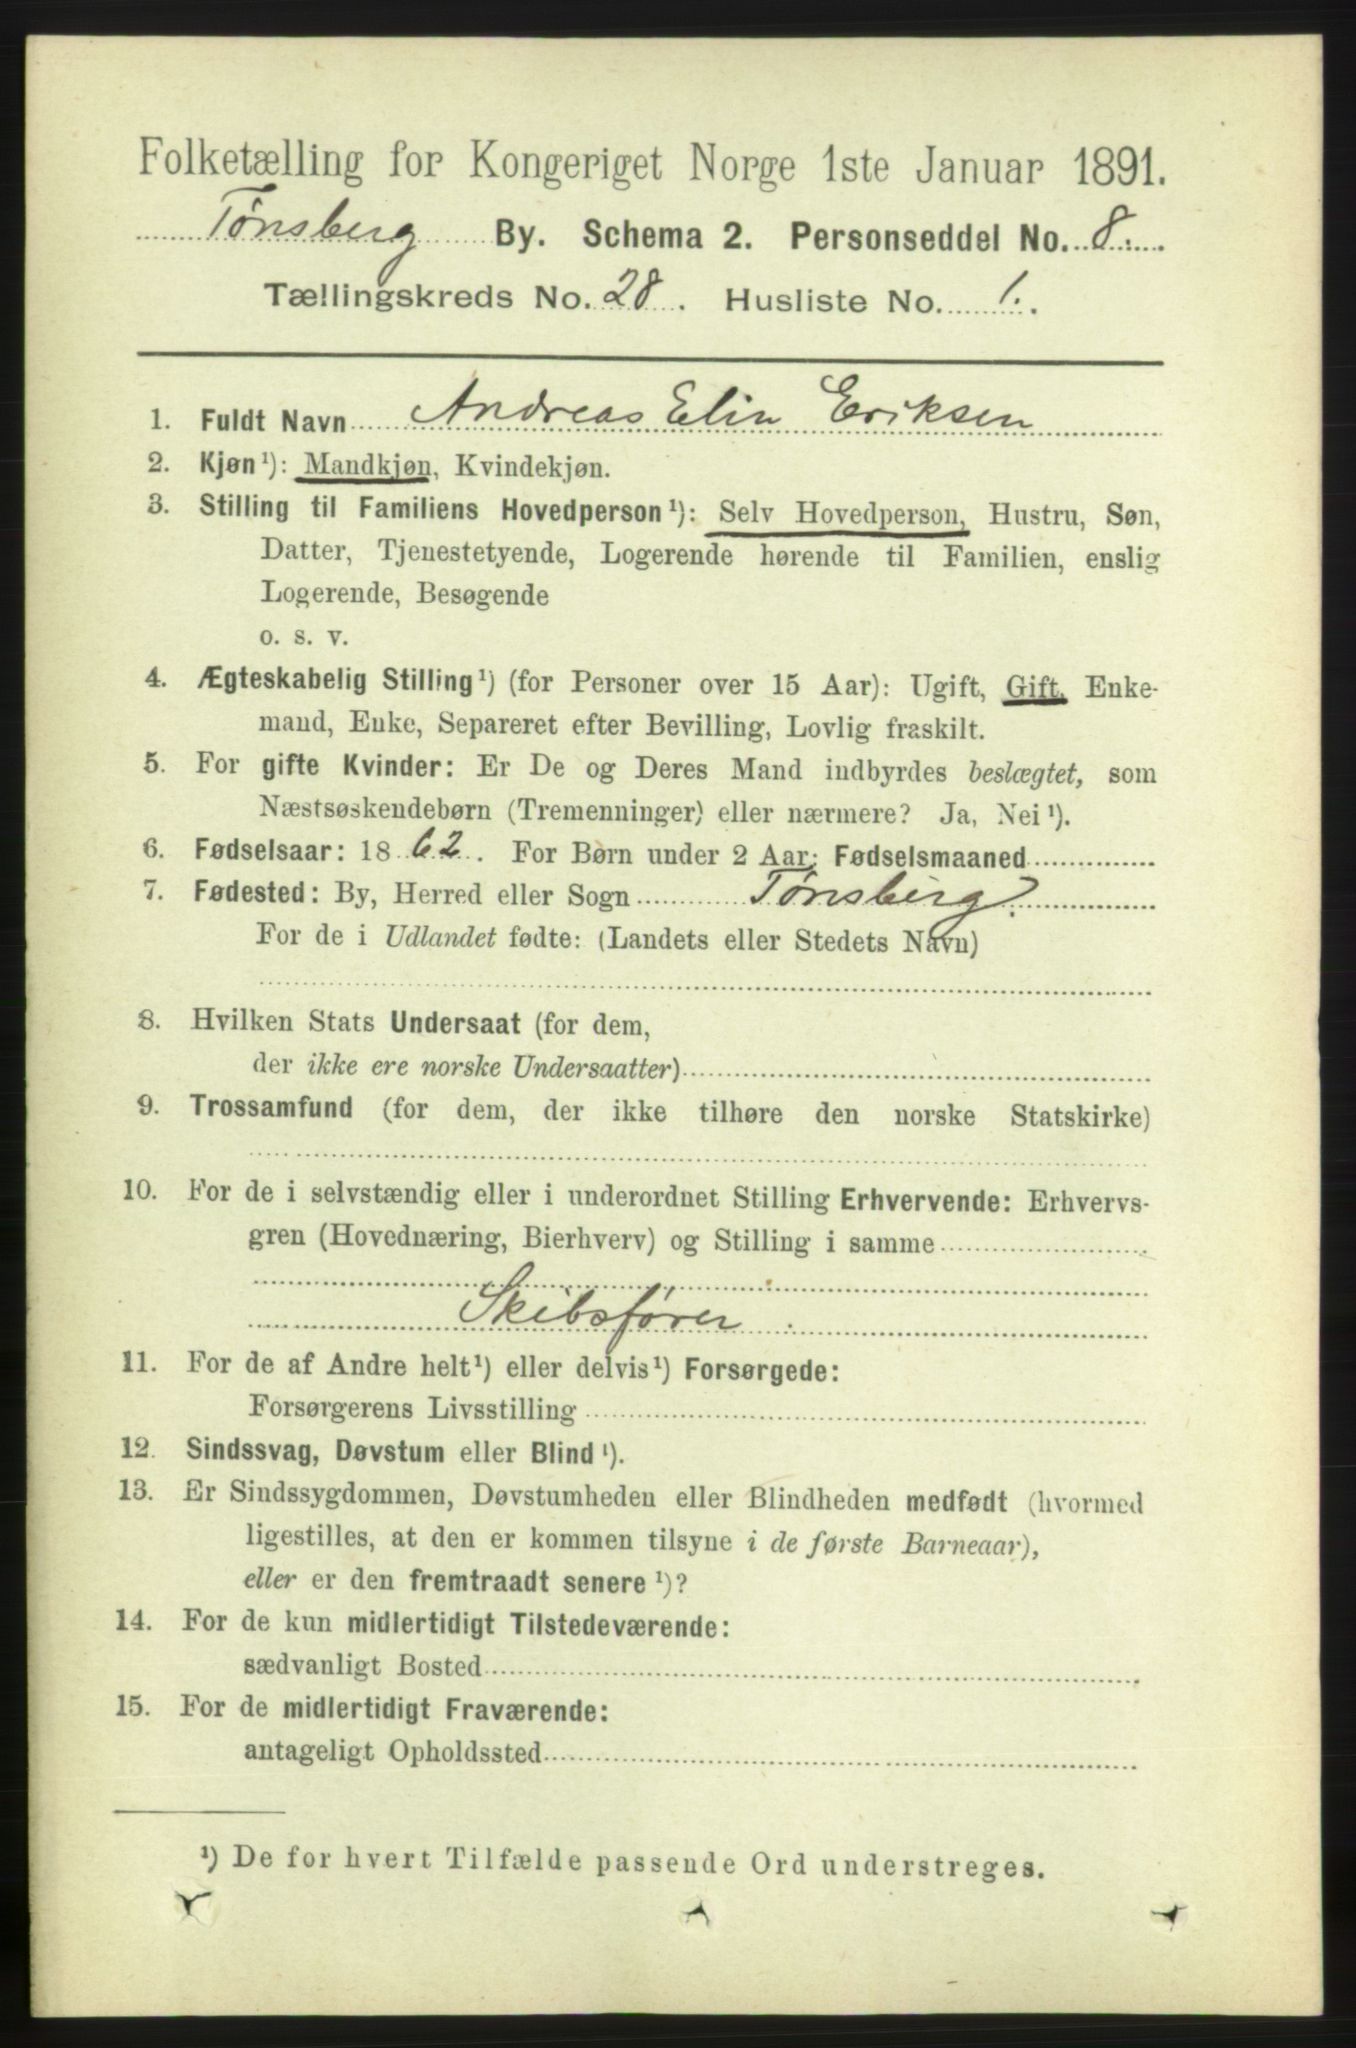 Folketælling for Kongeriget Norge 1ste Januar 1891.
Tønsberg By. Schema 2. Personseddel No. 8.
Tællingskreds No. 28. Husliste No. 1.
1. Fuldt Navn Andreas Elin Eriksen
2. Kjøn¹): Mandkjøn, Kvindekjøn.
3. Stilling til Familiens Hovedperson¹): Selv Hovedperson, Hustru, Søn,
Datter, Tjenestetyende, Logerende hørende til Familien, enslig
Logerende, Besøgende
o. s. v.
4. Ægteskabelig Stilling¹) (for Personer over 15 Aar): Ugift, Gift, Enke-
mand, Enke, Separeret efter Bevilling, Lovlig fraskilt.
5. For gifte Kvinder: Er De og Deres Mand indbyrdes beslægtet, som
Næstsøskendebørn (Tremenninger) eller nærmere? Ja, Nei¹).
6. Fødselsaar: 1862. For Børn under 2 Aar: Fødselsmaaned
7. Fødested: By, Herred eller Sogn Tønsberg.
For de i Udlandet fødte: (Landets eller Stedets Navn)
8. Hvilken Stats Undersaat (for dem,
der ikke ere norske Undersaatter)
9. Trossamfund (for dem, der ikke tilhøre den norske Statskirke)
10. For de i selvstændig eller i underordnet Stilling Erhvervende: Erhvervs-
gren (Hovednæring, Bierhverv) og Stilling i samme
Skibsfører
11. For de af Andre helt¹) eller delvis¹) Forsørgede:
Forsørgerens Livsstilling
12. Sindssvag, Døvstum eller Blind¹).
13. Er Sindssygdommen, Døvstumheden eller Blindheden medfødt (hvormed
ligestilles, at den er kommen tilsyne i de første Barneaar),
eller er den fremtraadt senere¹)?
14. For de kun midlertidigt Tilstedeværende:
sædvanligt Bosted
15. For de midlertidigt Fraværende:
antageligt Opholdssted
¹) De for hvert Tilfælde passende Ord understreges.